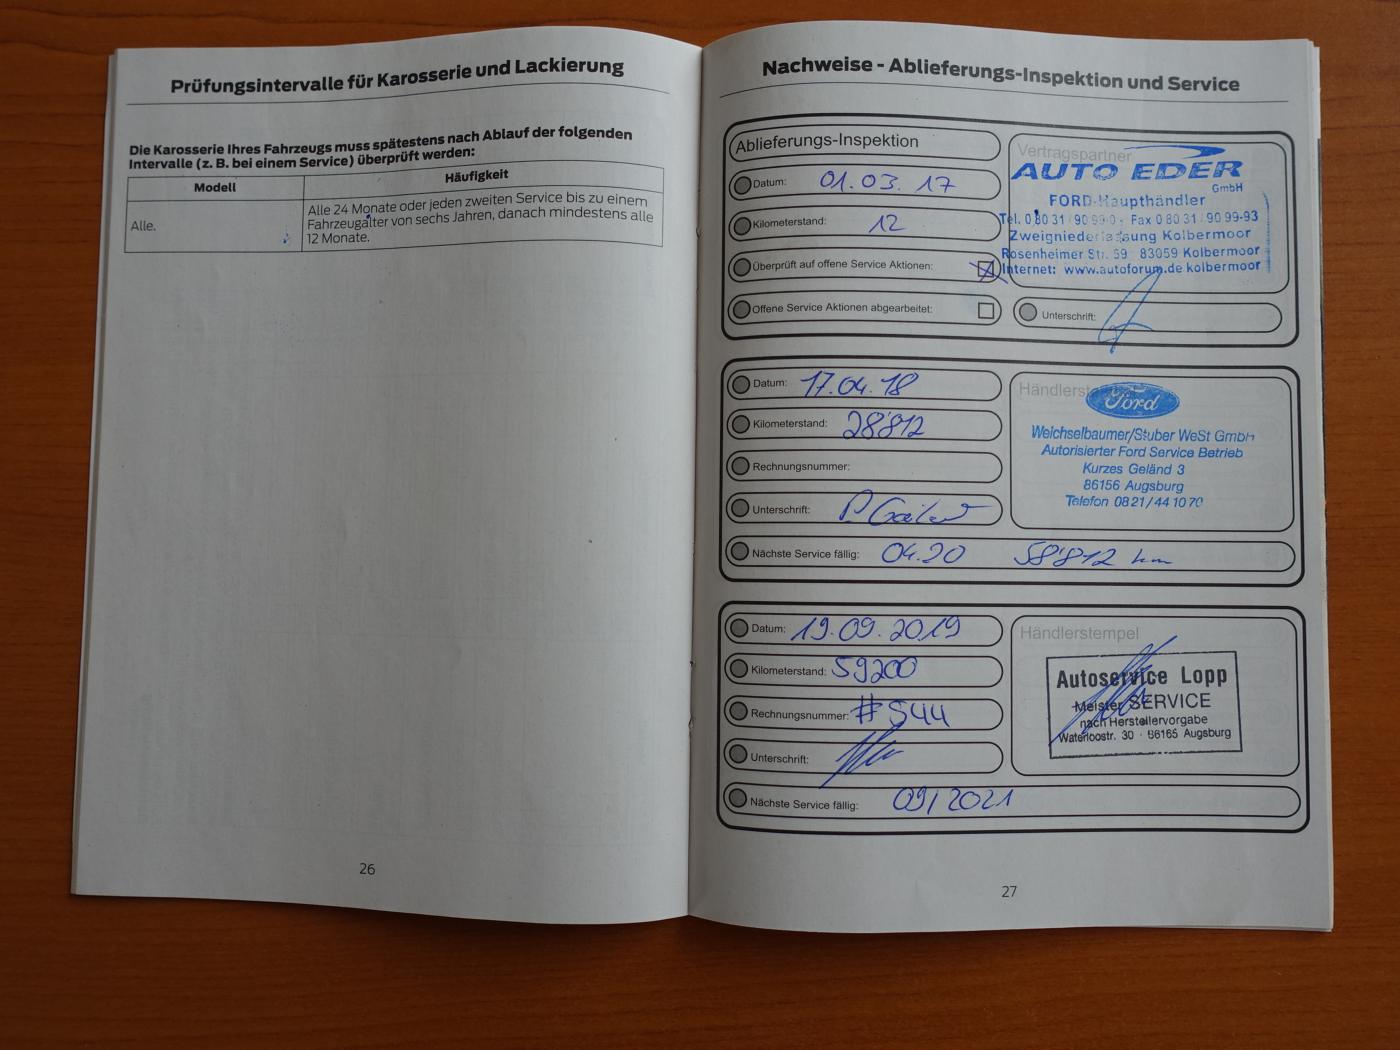 Prüfungsintervalle für Karosserie und Lackierung
Die Karosserie Ihres Fahrzeugs muss spätestens nach Ablauf der folgenden
Intervalle (z. B. bei einem Service) überprüft werden:
Modell
Häufigkeit
Alle.
Alle 24 Monate oder jeden zweiten Service bis zu einem
Fahrzeugalter von sechs Jahren, danach mindestens alle
12 Monate.
26
Nachweise - Ablieferungs-Inspektion und Service
Ablieferungs-Inspektion
Datum: 01.03.17
Kilometerstand: 12
Überprüft auf offene Service Aktionen:
Offene Service Aktionen abgearbeitet:
Vertragspartner
AUTO EDER
GmbH
FORD-Haupthändler
Tel. 0 80 31 / 90 99-0 - Fax 0 80 31 / 90 99-93
Zweigniederlassung Kolbermoor
Rosenheimer Str. 59 83059 Kolbermoor
Internet: www.autoforum.de kolbermoor
Unterschrift:
Datum: 17.04.18
Kilometerstand: 28'812
Rechnungsnummer:
Unterschrift:
Nächste Service fällig: 04.20 58'812 km
Ford
Weichselbaumer/Stuber WeSt GmbH
Autorisierter Ford Service Betrieb
Kurzes Geländ 3
86156 Augsburg
Telefon 08 21 / 44 10 70
Datum: 19.09.2019
Kilometerstand: 59200
Rechnungsnummer: #544
Unterschrift:
Nächste Service fällig: 09/2021
Händlerstempel
Autoservice Lopp
Meister SERVICE
nach Herstellervorgabe
Waterloostr. 30 · 86165 Augsburg
27